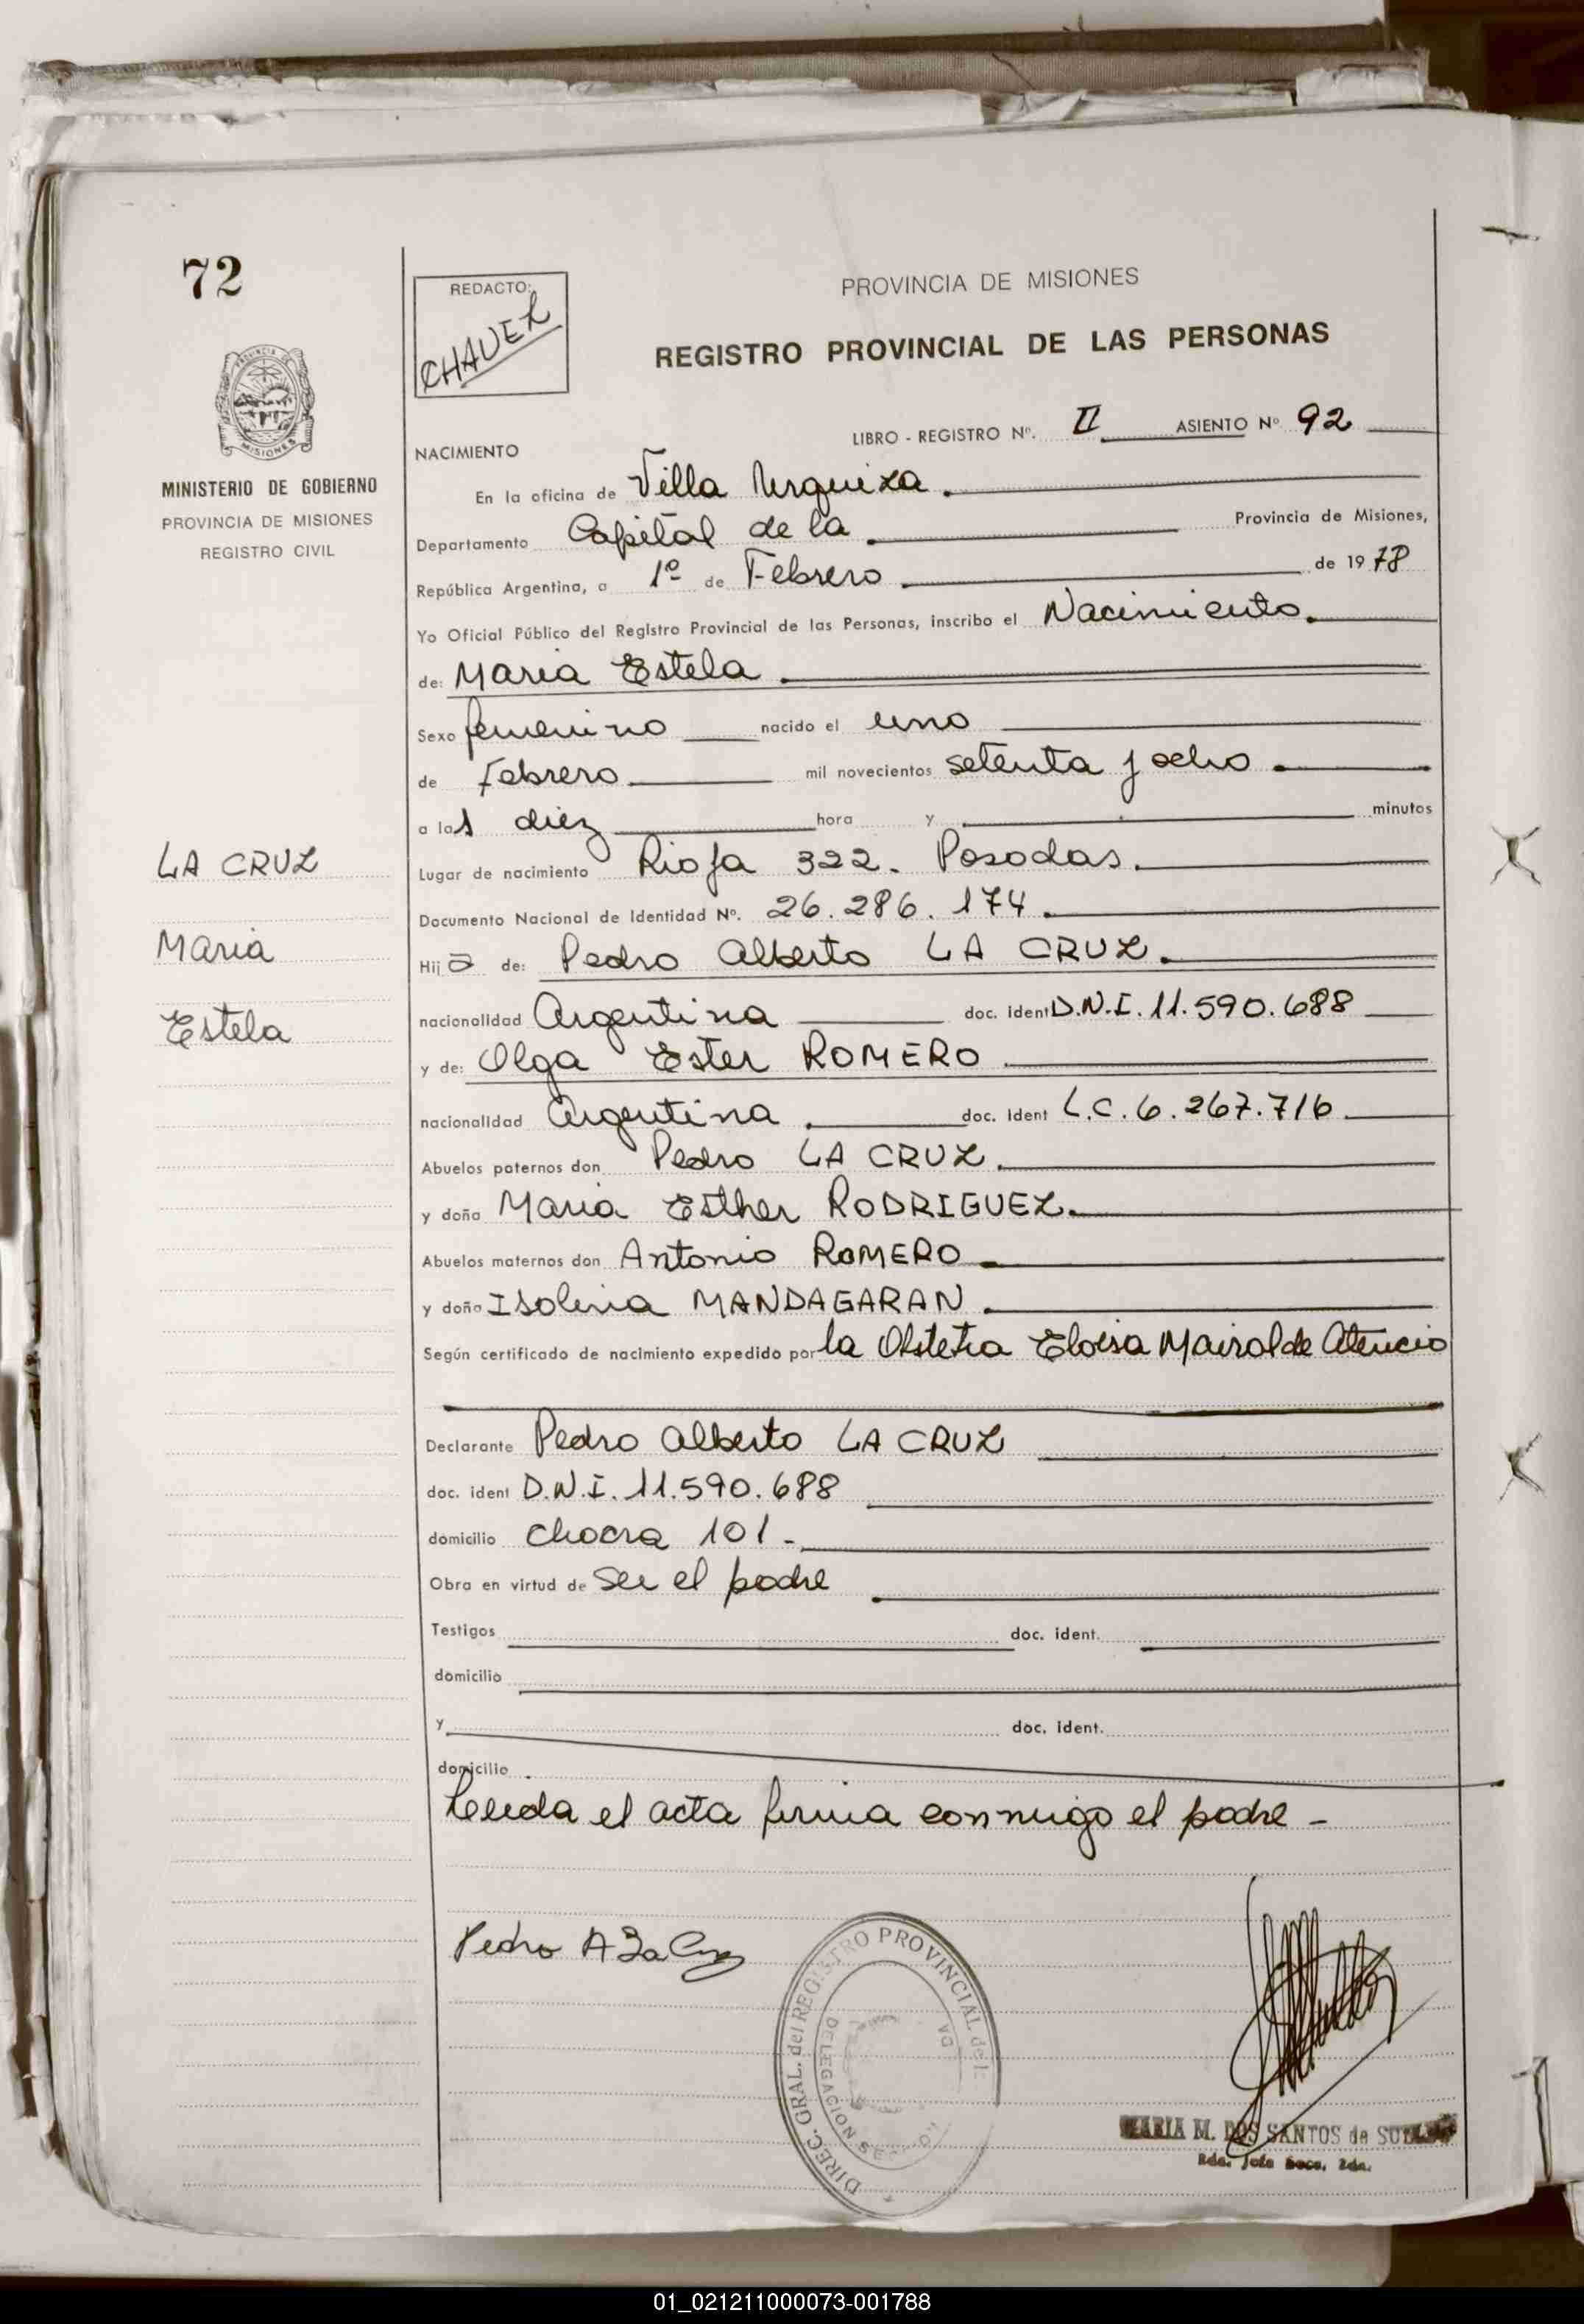 72
REDACTO:
CHAVEZ
PROVINCIA DE MISIONES
REGISTRO PROVINCIAL DE LAS PERSONAS
PROVINCIA DE
MISIONES
MINISTERIO DE GOBIERNO
PROVINCIA DE MISIONES
REGISTRO CIVIL
LIBRO - REGISTRO Nº. II ASIENTO Nº 92
NACIMIENTO
En la oficina de Villa Urquiza.
Departamento Capital de la Provincia de Misiones,
República Argentina, a 1º de Febrero de 1978
Yo Oficial Público del Registro Provincial de las Personas, inscribo el Nacimiento.
de: Maria Estela
Sexo femenino nacido el uno
de Febrero mil novecientos setenta y ocho
a las diez hora y minutos
Lugar de nacimiento Rioja 322. Posadas.
Documento Nacional de Identidad Nº. 26.286.174
Hija de: Pedro Alberto LA CRUZ.
nacionalidad Argentina doc. ident D.N.I. 11.590.688
y de: Olga Ester ROMERO
nacionalidad Argentina doc. Ident L.C. 6.267.716
Abuelos paternos don Pedro LA CRUZ.
y doña Maria Esther RODRIGUEZ.
Abuelos maternos don Antonio ROMERO
y doña Isolina MANDAGARAN
Según certificado de nacimiento expedido por la Obstetra Eloisa Mairal de Atencio
Declarante Pedro Alberto LA CRUZ
doc. ident D.N.I. 11.590.688
domicilio chacra 101.-
Obra en virtud de ser el padre
Testigos doc. ident.
domicilio
y doc. ident.
domicilio
Leida el acta firma conmigo el padre -
LA CRUZ
Maria
Estela
Pedro A La Cruz
DIREC. GRAL. del REGISTRO PROVINCIAL de l
DELEGACION SEC
DA
MARIA M. DOS SANTOS de
01_021211000073-001788